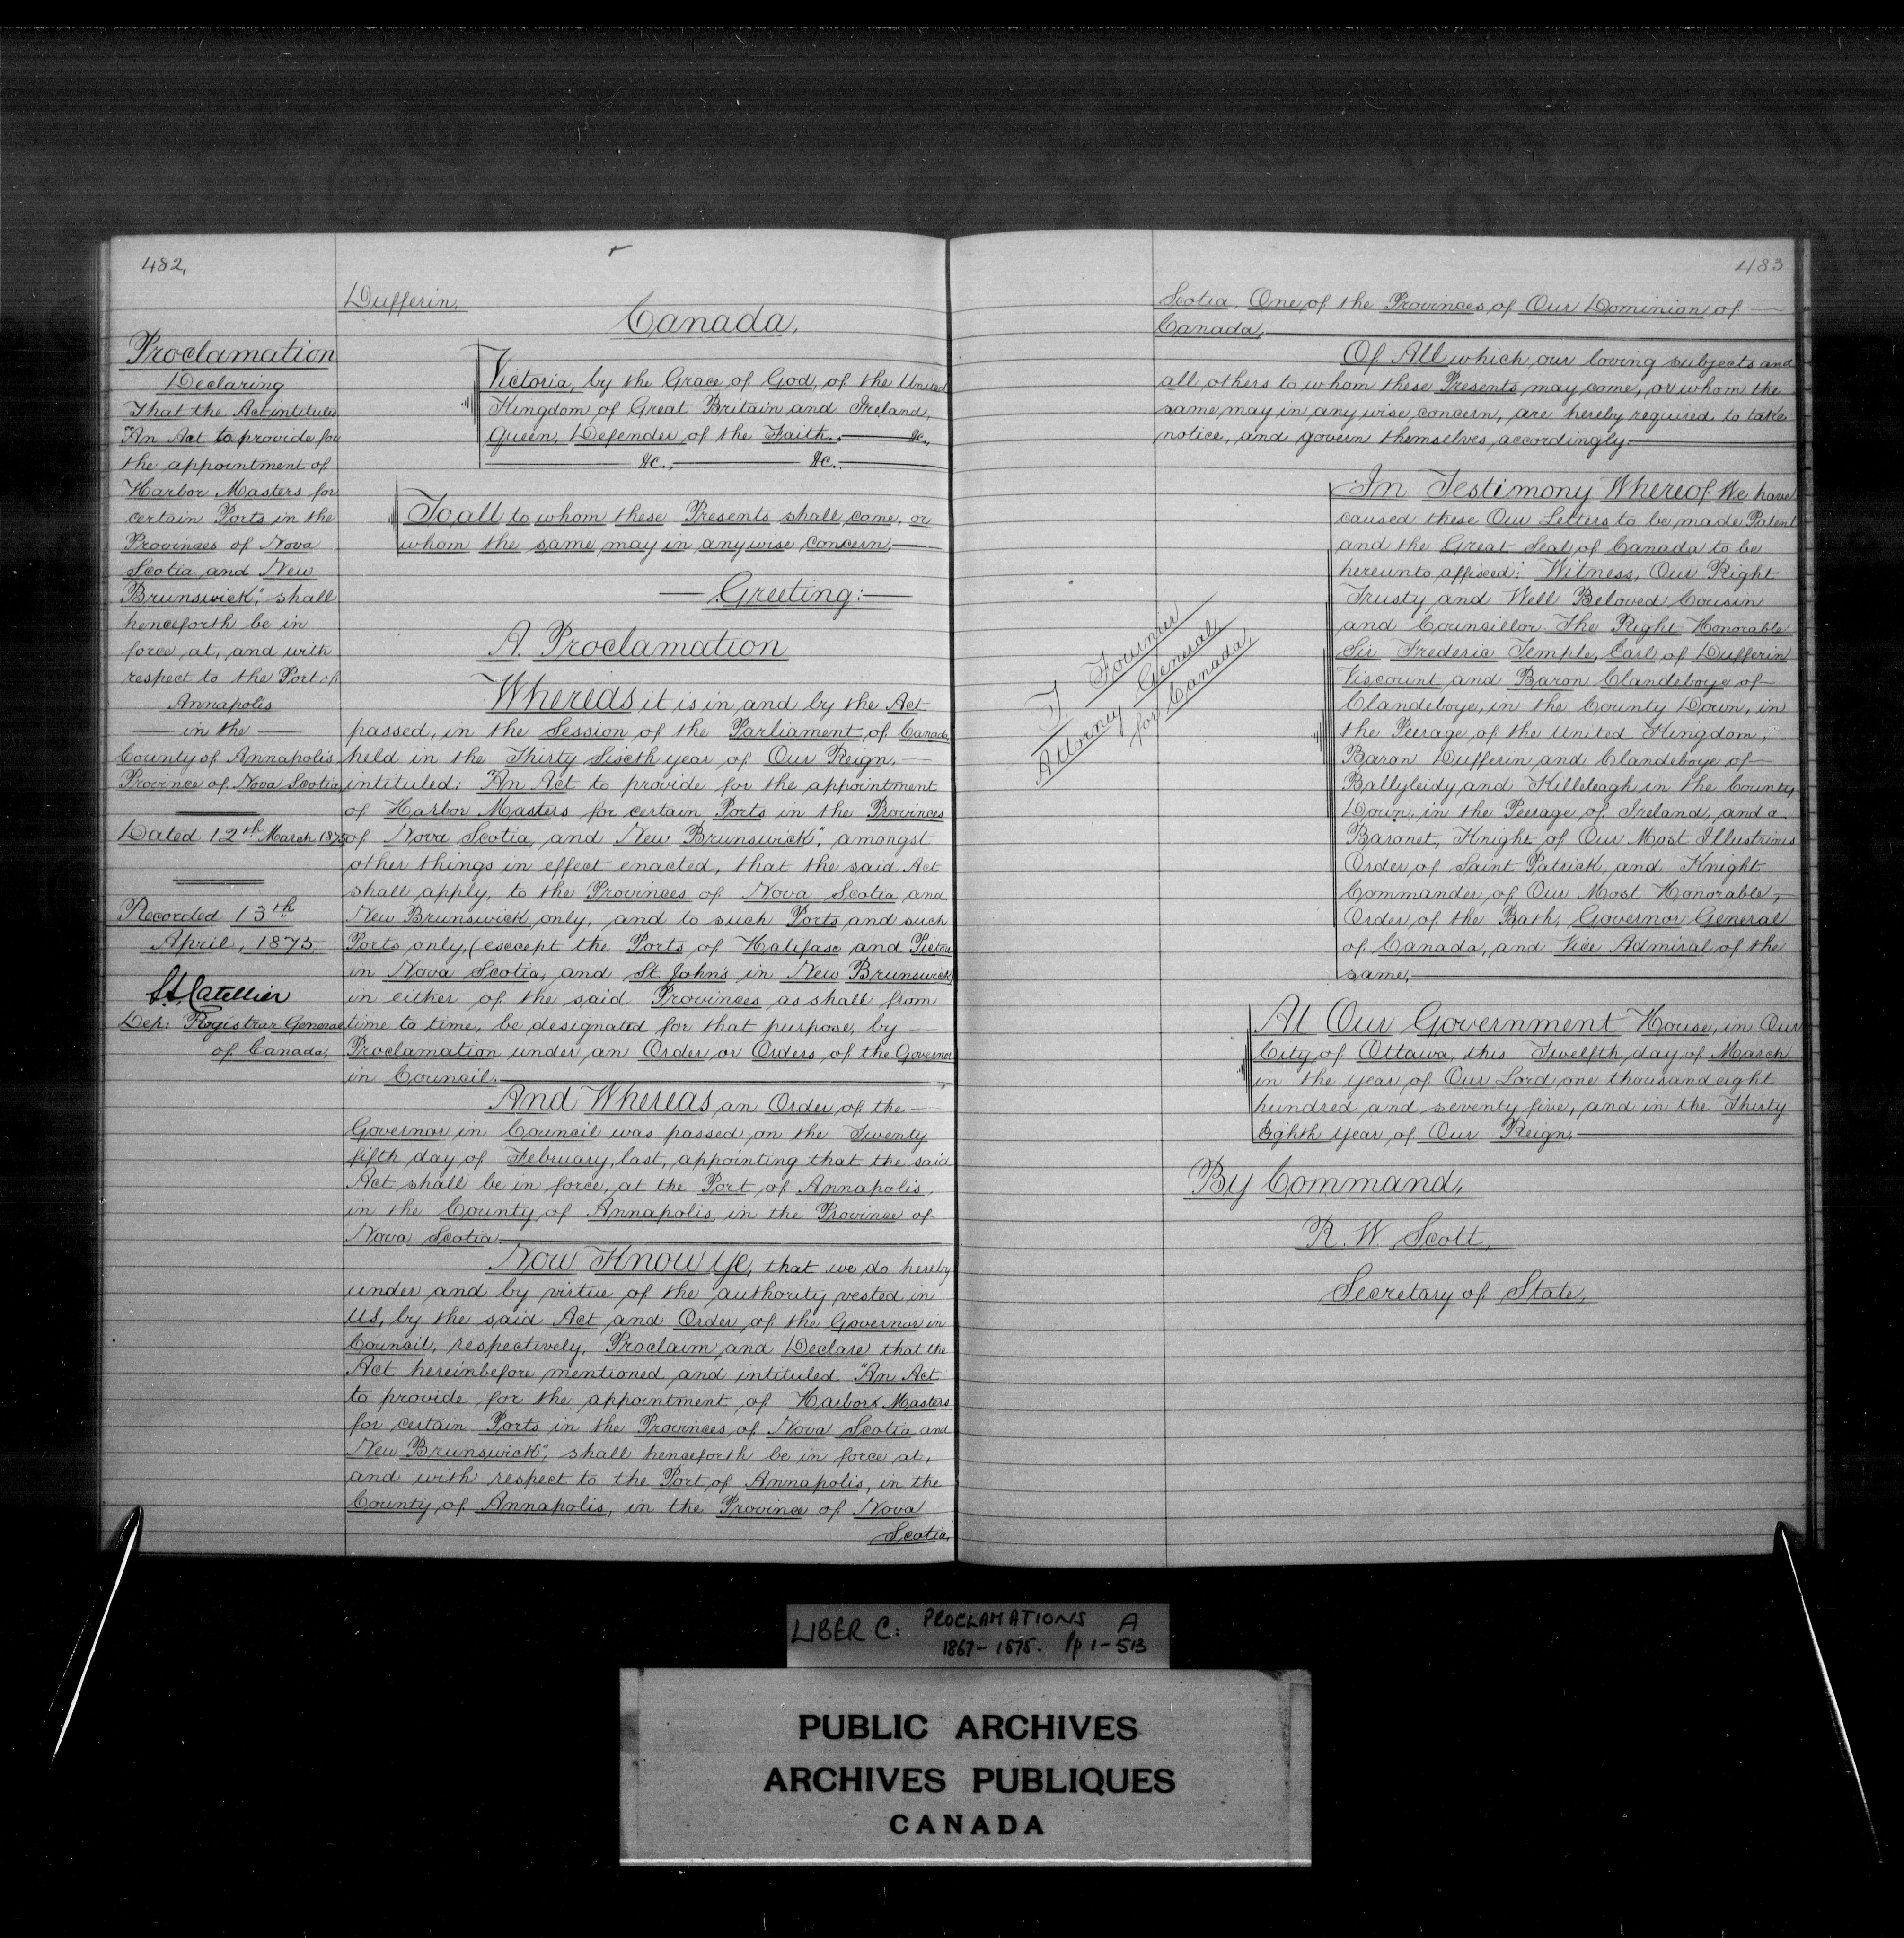 482,
Dufferin,
Canada,
Proclamation
Declaring
That the Act intituled
"An Act to provide for
the appointment of
Harbor Masters for
certain Ports in the
Provinces of Nova
Scotia and New
Brunswick", shall
henceforth be in
force at, and with
respect to the Port of
Annapolis
in the
County of Annapolis
Province of Nova Scotia,
Dated 12th March 1875
Recorded 13th
April, 1875.
Dep: Registrar General
of Canada,
Victoria, by the Grace of God, of the United
Kingdom of Great Britain and Ireland,
Queen, Defender of the Faith, &c.,
&c., &c.
To all to whom these Presents shall come, or
whom the same may in anywise concern,
Greeting:
A Proclamation
Whereas it is in and by the Act
passed, in the Session of the Parliament of Canada,
held in the Thirty Sixth year of Our Reign,
intituled: "An Act to provide for the appointment
of Harbor Masters for certain Ports in the Provinces
of Nova Scotia, and New Brunswick", amongst
other things in effect enacted, that the said Act
shall apply, to the Provinces of Nova Scotia and
New Brunswick only, and to such Ports and such
Ports only, (except the Ports of Halifax and Pictou
in Nova Scotia, and St. John's in New Brunswick)
in either of the said Provinces as shall from
time to time, be designated for that purpose, by
Proclamation under an Order or Orders, of the Governor
in Council.
And Whereas an Order of the
Governor in Council was passed on the Twenty
fifth day of February, last, appointing that the said
Act shall be in force, at the Port of Annapolis,
in the County of Annapolis in the Province of
Nova Scotia.
Now Know Ye, that we do hereby
under and by virtue of the authority vested in
Us, by the said Act and Order of the Governor in
Council, respectively, Proclaim and Declare that the
Act hereinbefore mentioned and intituled "An Act
to provide for the appointment of Harbors Masters
for certain Ports in the Provinces of Nova Scotia and
New Brunswick", shall henceforth be in force at,
and with respect to the Port of Annapolis, in the
County of Annapolis, in the Province of Nova
Scotia,
483
Scotia, One of the Provinces of Our Dominion of
Canada,
Of All which our loving subjects and
all others to whom these Presents may come, or whom the
same may in any wise concern, are hereby required to take
notice, and govern themselves accordingly.
T Fournier
Attorney General,
for Canada,
In Testimony Whereof We have
caused these Our Letters to be made Patent
and the Great Seal of Canada to be
hereunto affixed: Witness, Our Right
Trusty and Well Beloved Cousin
and Councillor The Right Honorable
Sir Frederic Temple, Earl of Dufferin
Viscount and Baron Clandeboye of
Clandeboye, in the County Down, in
the Peerage of the United Kingdom,
Baron Dufferin and Clandeboye of
Ballyleidy and Killeleagh in the County
Down, in the Peerage of Ireland, and a
Baronet, Knight of Our Most Illustrious
Order of Saint Patrick, and Knight
Commander of Our Most Honorable,
Order of the Bath, Governor General
of Canada, and Vice Admiral of the
same,
At Our Government House, in Our
City of Ottawa, this Twelfth, day of March
in the year of Our Lord one thousand eight
hundred and seventy five, and in the Thirty
Eighth year of Our Reign.
By Command,
R. W. Scott,
Secretary of State,
LIBER C: PROCLAMATIONS A
1867-1875. Pp 1-513
PUBLIC ARCHIVES
ARCHIVES PUBLIQUES
CANADA